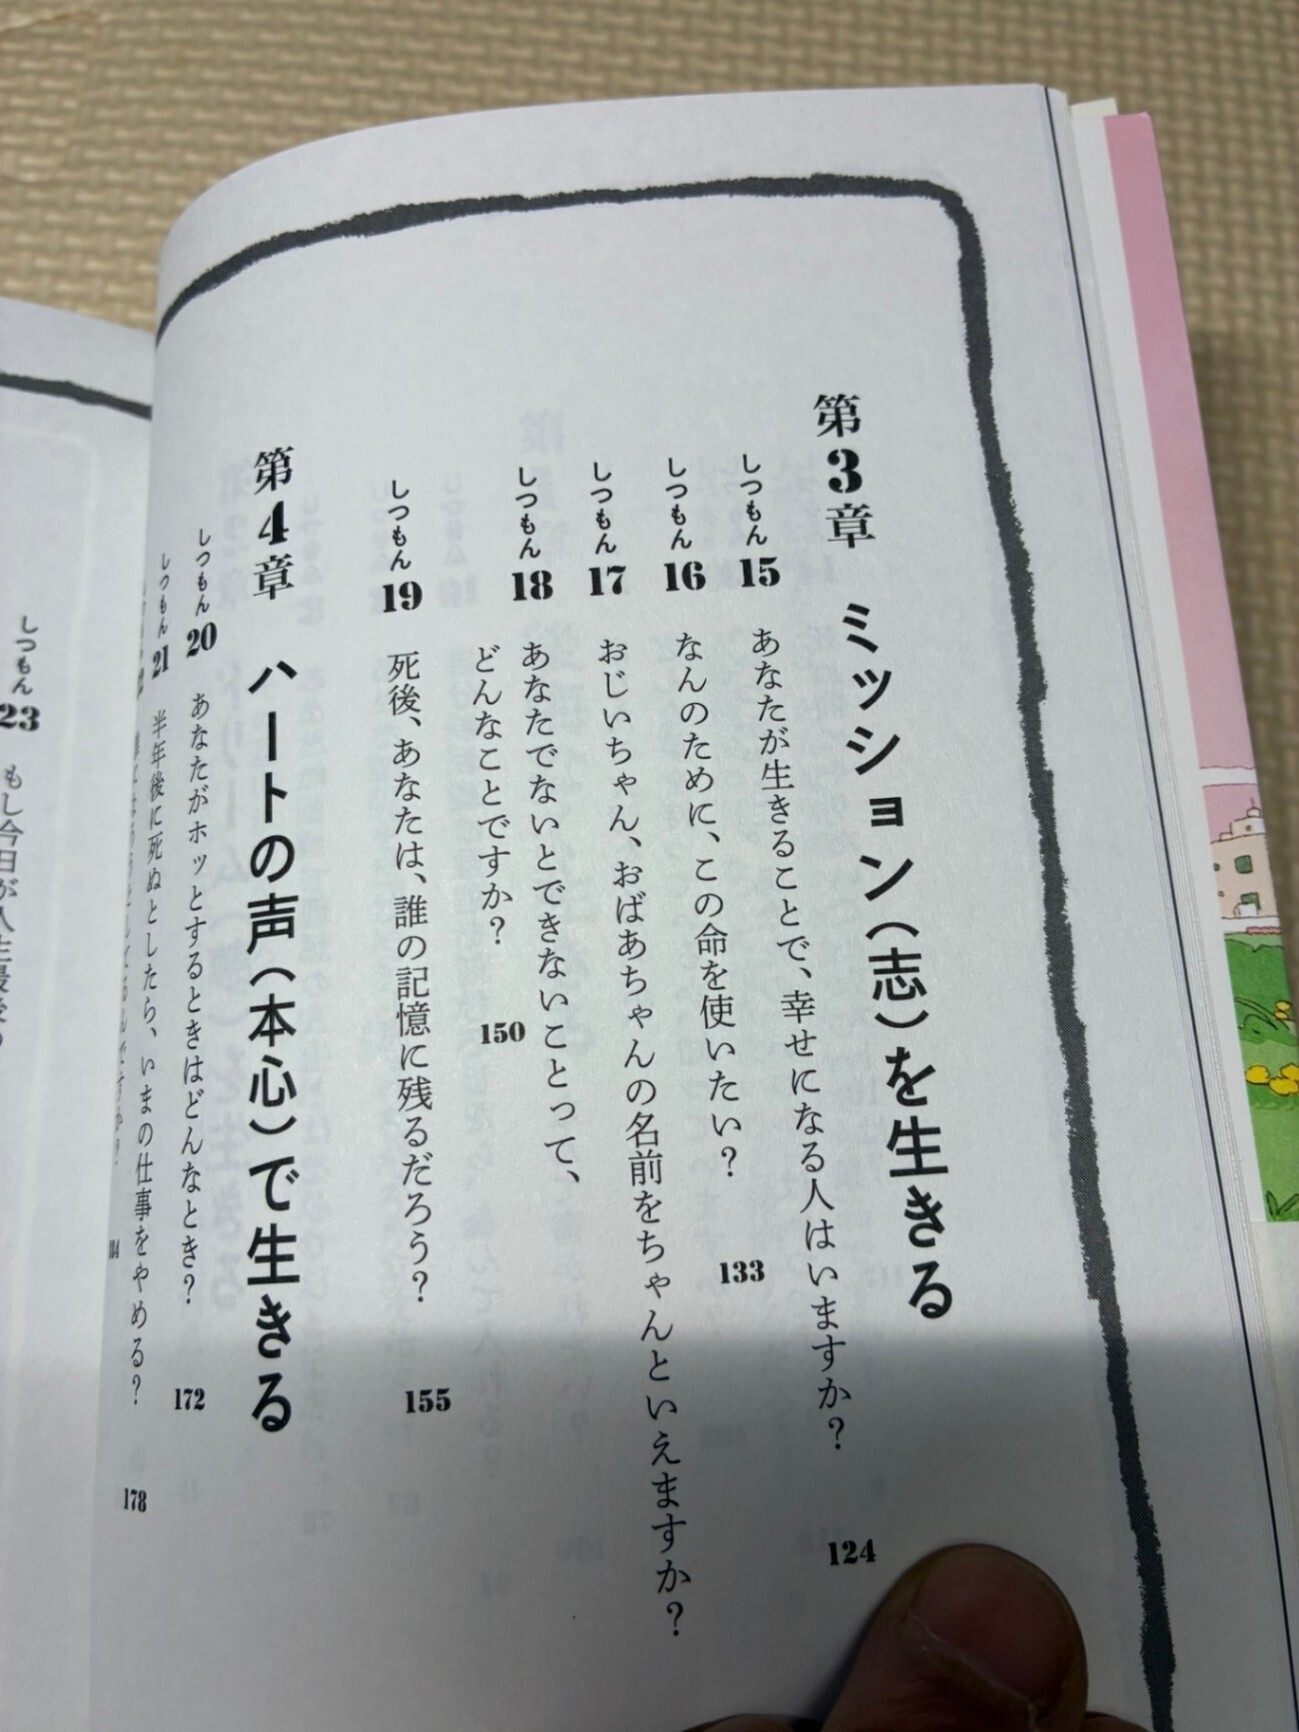 第3章 ミッション（志）を生きる
しつもん15 あなたが生きることで、幸せになる人はいますか？ 124
しつもん16 なんのために、この命を使いたい？ 133
しつもん17 おじいちゃん、おばあちゃんの名前をちゃんといえますか？
しつもん18 あなたでないとできないことって、
どんなことですか？ 150
しつもん19 死後、あなたは、誰の記憶に残るだろう？ 155
第4章 ハートの声（本心）で生きる
しつもん20 あなたがホッとするときはどんなとき？ 172
しつもん21 半年後に死ぬとしたら、いまの仕事をやめる？ 178
しつもん23 もし今日が人生最後の